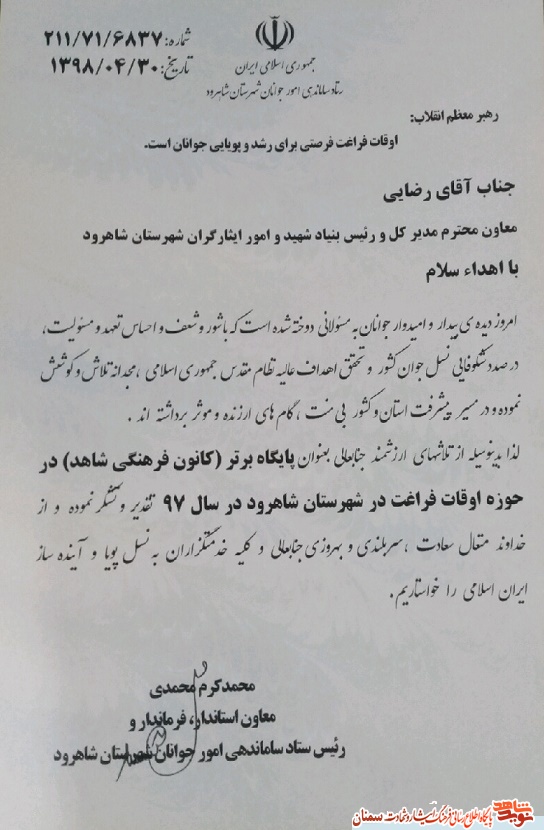 شماره: ۲۱۱/۷۱/۶۸۳۷
تاریخ: ۱۳۹۸/۰۴/۳۰
جمهوری اسلامی ایران
ستاد ساماندهی امور جوانان شهرستان شاهرود
رهبر معظم انقلاب:
اوقات فراغت فرصتی برای رشد و پویایی جوانان است.
جناب آقای رضایی
معاون محترم مدیر کل و رئیس بنیاد شهید و امور ایثارگران شهرستان شاهرود
با اهداء سلام
امروز دیده ی بیدار و امیدوار جوانان به مسئولانی دوخته شده است که با شور و شعف و احساس تعهد و مسئولیت،
در صدد شکوفایی نسل جوان کشور و تحقق اهداف عالیه نظام مقدس جمهوری اسلامی ، مجدانه تلاش و کوشش
نموده و در مسیر پیشرفت استان و کشور بی منت ، گام های ارزنده و موثر برداشته اند .
لذا بدینوسیله از تلاشهای ارزشمند جنابعالی بعنوان پایگاه برتر (کانون فرهنگی شاهد) در
حوزه اوقات فراغت در شهرستان شاهرود در سال ۹۷ تقدیر و تشکر نموده و از
خداوند متعال سعادت ، سربلندی و بهروزی جنابعالی و کلیه خدمتگزاران به نسل پویا و آینده ساز
ایران اسلامی را خواستاریم.
محمدکرم محمدی
معاون استاندار، فرماندار و
رئیس ستاد ساماندهی امور جوانان شهرستان شاهرود
نوید شاهد
پایگاه اطلاع رسانی فرهنگ ایثار و شهادت سمنان